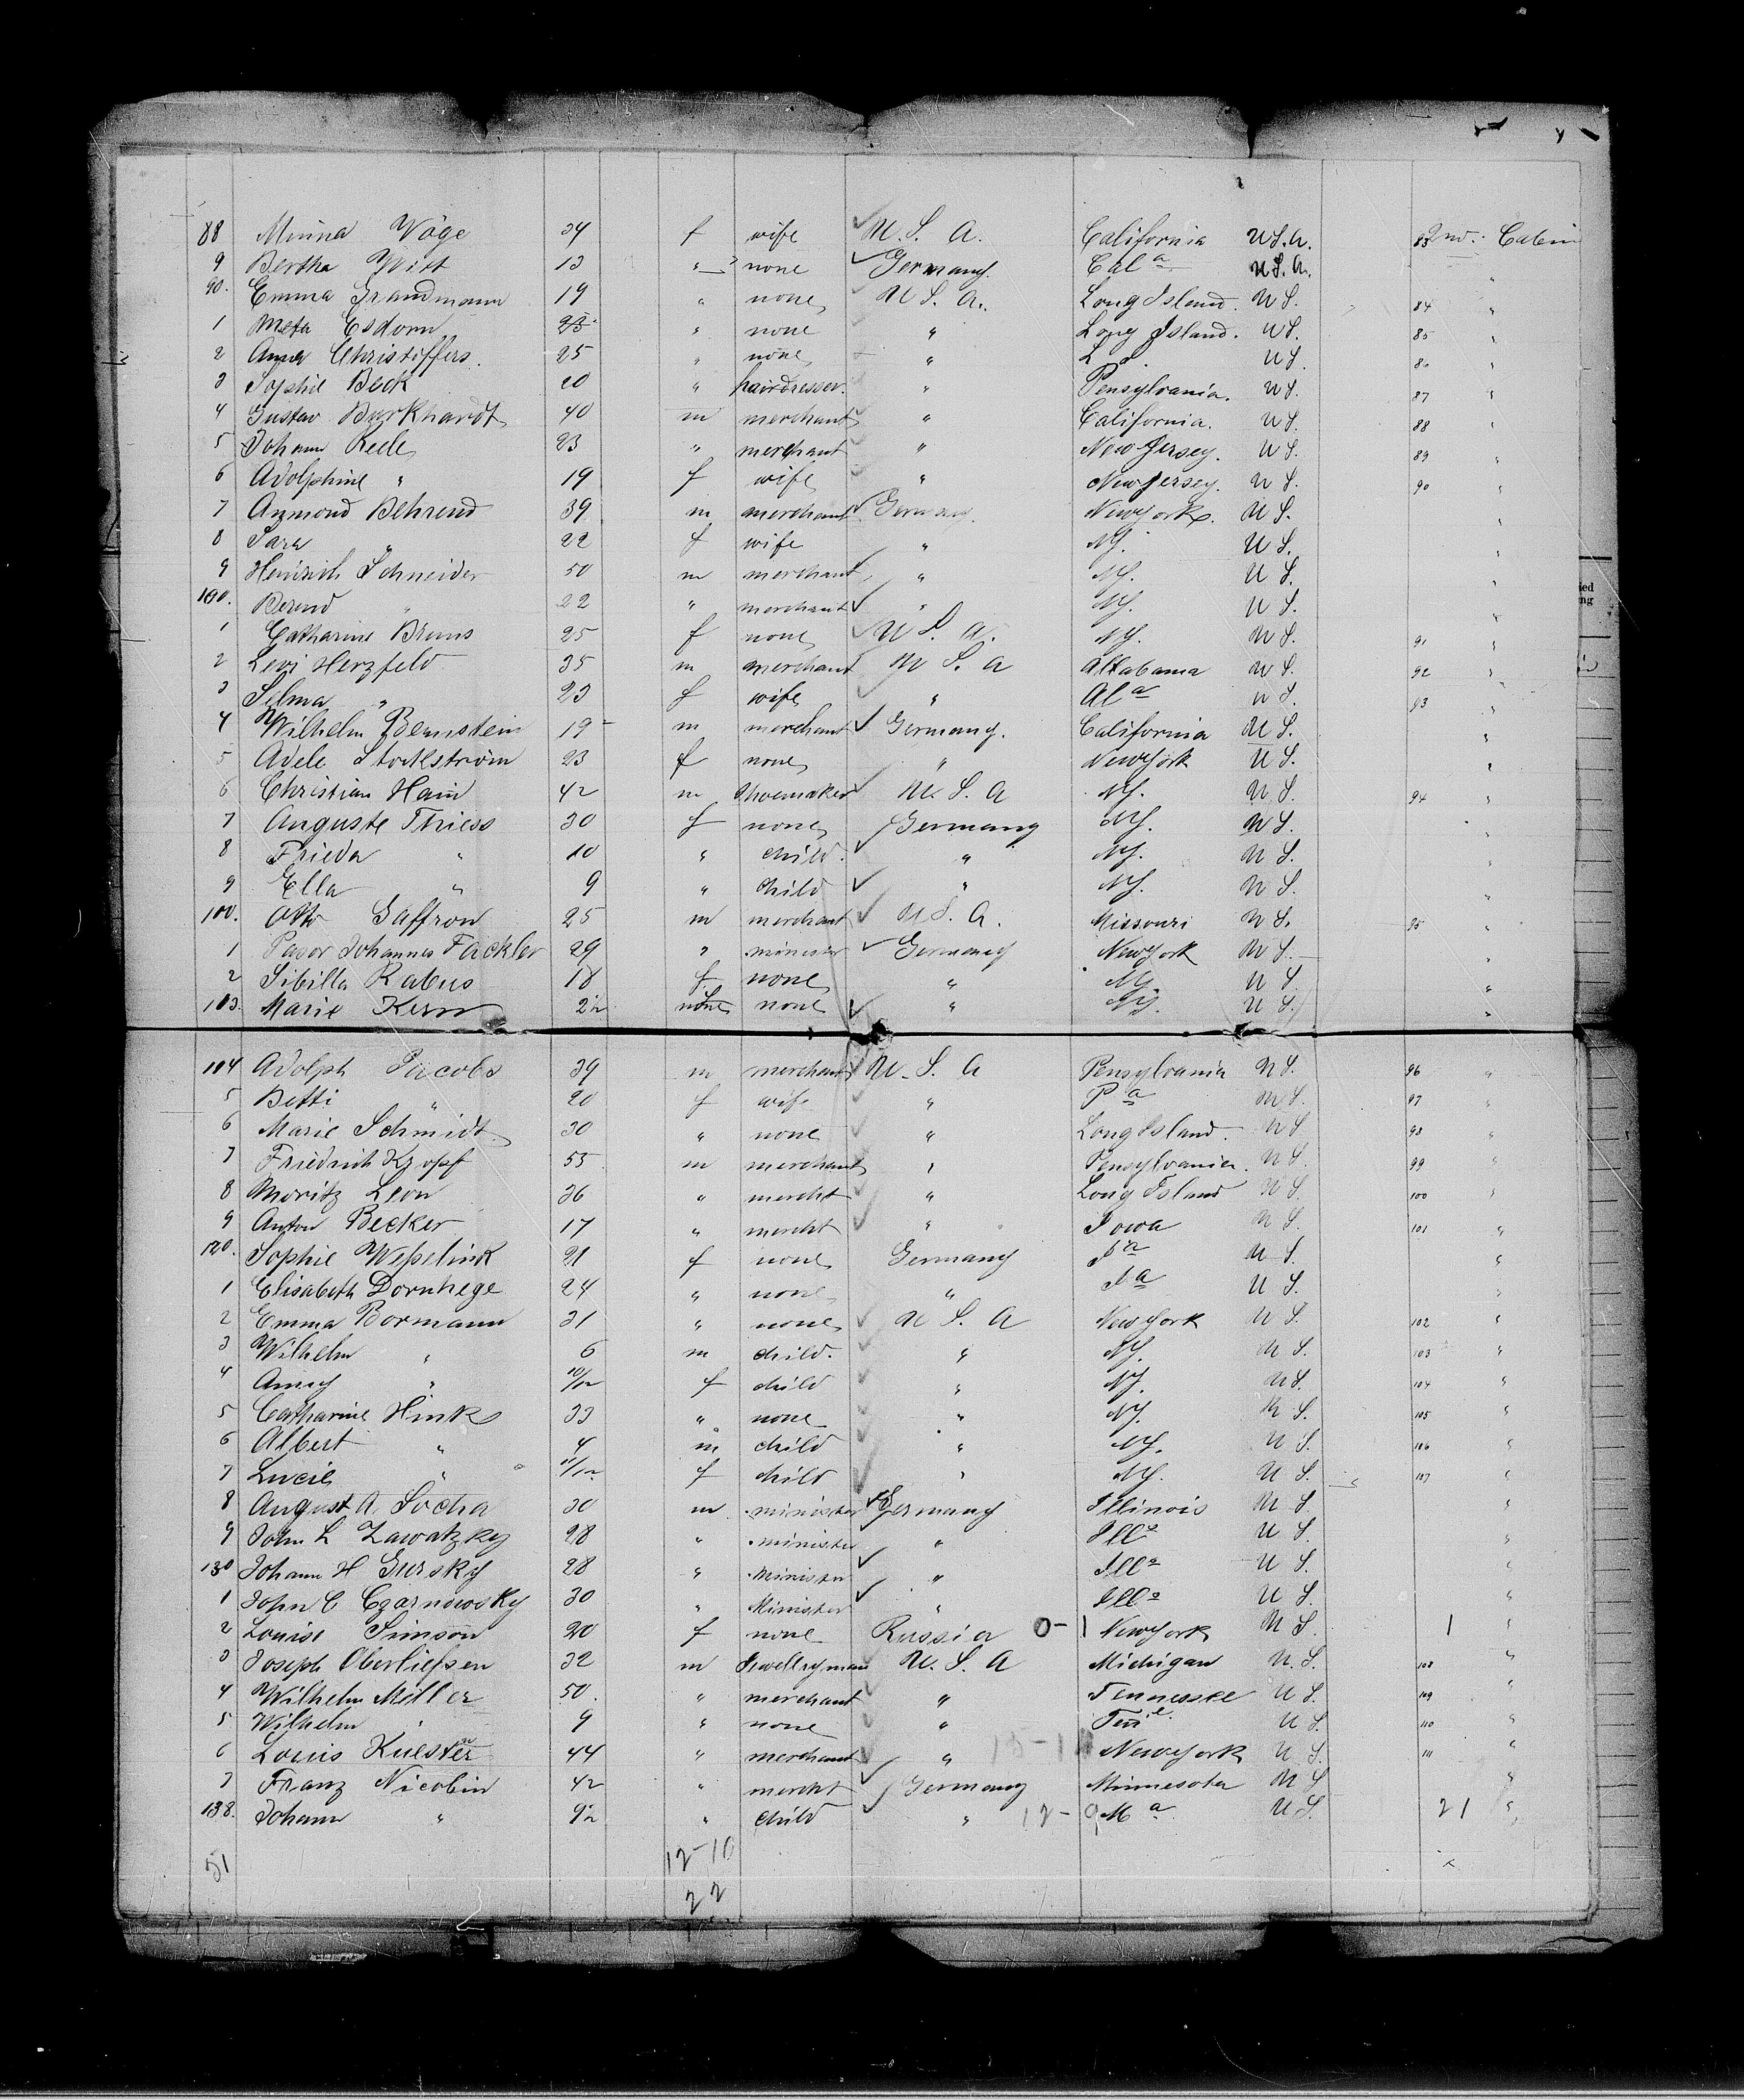 88 Minna Vöge 34 f wife U. S. A. California U.S.A. 83 2nd. Cabin
9 Bertha Witt 13 " none Germany Cal a U.S.A. "
90. Emma Grandmann 19 " none U S. A. Long Island. U S. 84 "
1 Meta Esdorn 23 " none " Long Island. U S. 85 "
2 Anna Christoffers. 25 " none " L I. U S. 86 "
3 Sophie Beck 20 " hairdresser. " Pensylvania. U S. 87 "
4 Gustav Burkhardt 40 m merchant " California. U S. 88 "
5 Johann Rede 23 " merchant " New Jersey. U S. 89 "
6 Adolphine " 19 f wife " New Jersey. U S. 90 "
7 Behrend 39 m merchant Germany. New York. U S. "
8 Sara " 22 f wife " NY. U S. "
9 Heinrich Schneider 50 m merchant " NY. U S. "
100. Berend " 22 " merchant " NY. U S. "
1 Catharine Bruns 25 f none U S. A. NY. U S. 91 "
2 Levi Herzfeld 35 m merchant U S. A Allabama U S. 92 "
3 Selma " 23 f wife " Al a U S. 93 "
4 Wilhelm Bernstein 19 m merchant Germany. California U S. "
5 Adele Stockström 23 f none " New York U S. "
6 Christian Hain 42 m Shoemaker U. S. A NY. U S. 94 "
7 Auguste Thiess 30 f none Germany NY. U S. "
8 Frieda " 10 " child. " NY. U S. "
9 Ella " 9 " child " NY. U S. "
100. Otto Gaffron 25 m merchant U S. A. Missouri U S. 95 "
1 Pasor Johannes Fackler 29 " minister Germany New York U S. "
2 Sibilla Rabus 18 f none " NY. U S. "
103. Marie Kern 22 none " NY. U S. "
104 Adolph Jacobs 39 m merchant U. S. A Pensylvania U S. 96 "
5 Betti " 20 f wife " P a U S. 97 "
6 Marie Schmidt 30 " none " Long Island. U S 98 "
7 Friedrich 55 m merchant " Pensylvania. U S. 99 "
8 Moritz Leon 36 " mercht " Long Island U S. 100 "
9 Anton Becker 17 " mercht " Iowa U S. 101 "
120. Sophie Weßelink 21 f none Germany I a U S. "
1 Elisabeth Dornhege 24 " none " I a U S. "
2 Emma Bormann 31 " none U S. A New York U S. 102 "
3 Wilhelm " 6 m child. " NY. U S. 103 "
4 Amy " 10/12 f child " NY. U S. 104 "
5 Catharine Hinks 33 " none " NY. U S. 105 "
6 Albert " 4 m child " NY. U S. 106 "
7 Lucie " 11/12 f child " NY. U S. 107 "
8 August A. Socha 30 m minister Germany Illinois U S. "
9 John L Zawatzky 28 " minister " Ill s U S. "
130 Johann H Gursky 28 " Minister " Ill s U S. "
1 John C Czarnowsky 30 " Minister " Ill s U S. "
2 Louise Simson 20 f none Russia 0-1 New York U S. 1 "
3 Joseph Oberließen 32 m Jewellryman U. S. A Michigan U. S. 108 "
4 Wilhelm Miller 50. " merchant " Tennessee U S. 109 "
5 Wilhelm " 9 " none " Ten e. U S. 110 "
6 Louis Kuester 44 " merchant " New York U S. 111 "
7 Franz Nicolin 42 " mercht Germany Minnesota U S "
138. Johann " 9½ " child " 12-9 M a. U S. 21 "
51 12-10
22